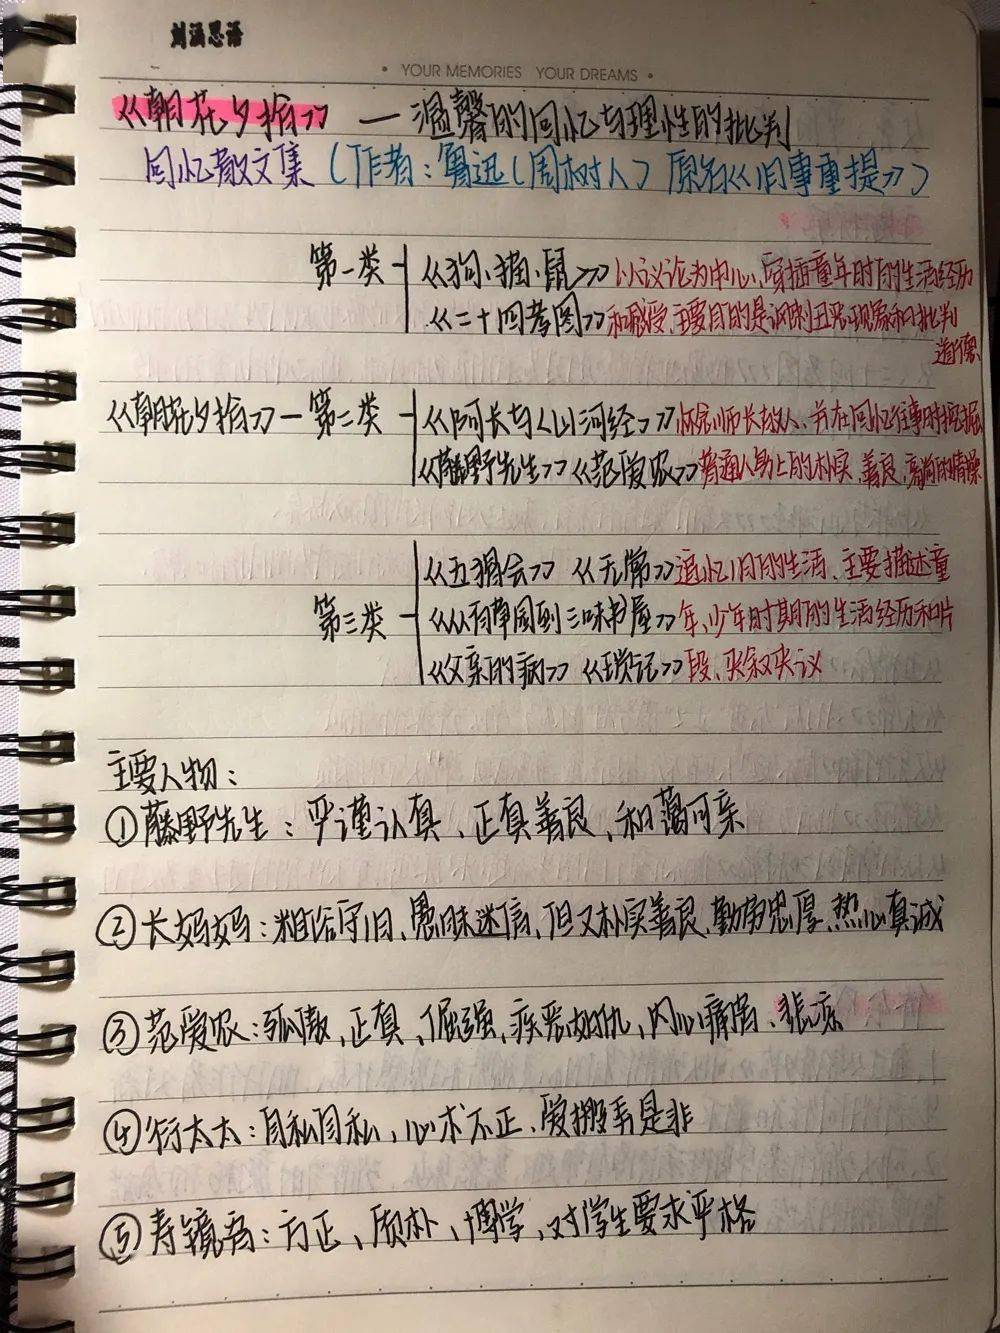 刘涵思语
• YOUR MEMORIES YOUR DREAMS •
《朝花夕拾》 — 温馨的回忆与理性的批判
回忆散文集 (作者:鲁迅(周树人) 原名《旧事重提》)
第一类 《狗·猫·鼠》 以议论为中心,穿插童年时的生活经历
《二十四孝图》 和感受,主要目的是讽刺丑恶现象和批判
道德
《朝花夕拾》 — 第二类 《阿长与〈山河经〉》 怀念师长故人、并在回忆往事时挖掘
《藤野先生》 《范爱农》 普通人身上的朴实、善良、高尚的情操
《五猖会》 《无常》 追忆旧日的生活、主要描述童
第三类 《从百草园到三味书屋》 年、少年时期的生活经历和片
《父亲的病》 《琐记》 段、夹叙夹议
主要人物:
①藤野先生:严谨认真、正直善良、和蔼可亲
②长妈妈:粗俗守旧、愚昧迷信、但又朴实善良、勤劳忠厚、热心真诚
③范爱农:孤傲、正直、倔强、疾恶如仇、内心痛苦、悲凉
④衍太太:自私自私、心术不正、爱搬弄是非
⑤寿镜吾:方正、质朴、博学、对学生要求严格